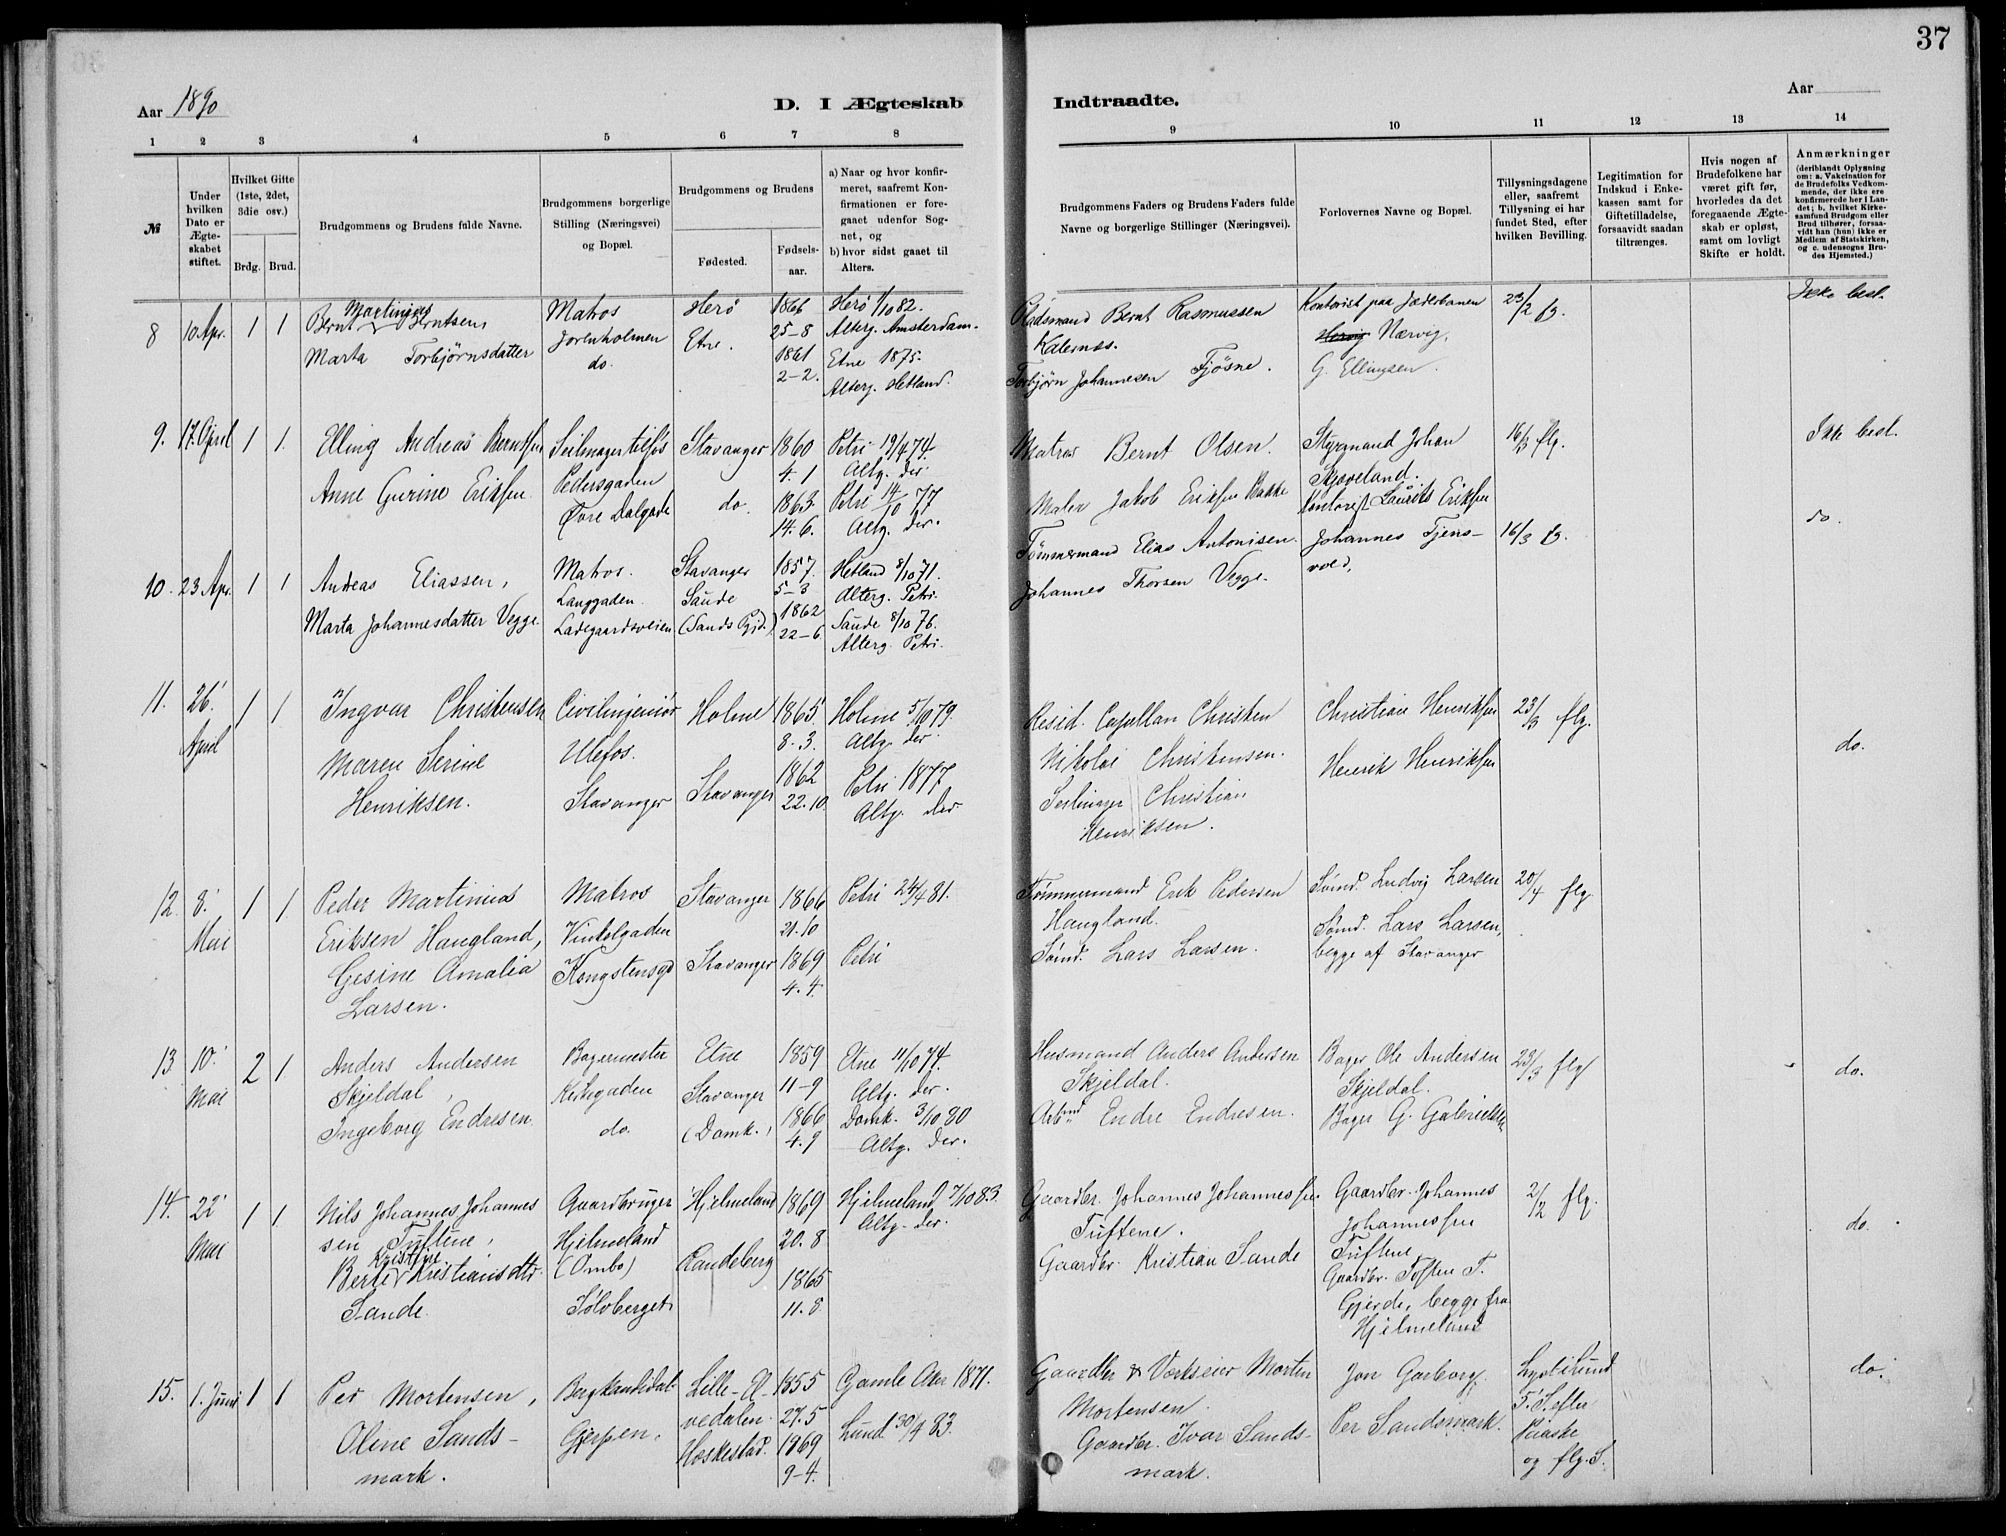 37
Aar 1890
D. I Ægteskab Indtraadte.
Aar
1 2 3 4 5 6 7 8 9 10 11 12 13 14
№
Under hvilken Dato er Ægteskabet stiftet.
Hvilket Gifte (1ste, 2det, 3die osv.)
Brdg. Brud.
Brudgommens og Brudens fulde Navne.
Brudgommens borgerlige Stilling (Næringsvei) og Bopæl.
Brudgommens og Brudens
Fødested. Fødselsaar.
a) Naar og hvor konfirmeret, saafremt Konfirmationen er foregaaet udenfor Sognet, og
b) hvor sidst gaaet til Alters.
Brudgommens Faders og Brudens Faders fulde Navne og borgerlige Stillinger (Næringsvei).
Forlovernes Navne og Bopæl.
Tillysningsdagene eller, saafremt Tillysning ei har fundet Sted, efter hvilken Bevilling.
Legitimation for Indskud i Enkekassen samt for Giftetilladelse, forsaavidt saadan tiltrænges.
Hvis nogen af Brudefolkene har været gift før, hvorledes da det foregaaende Ægteskab er opløst, samt om lovligt Skifte er holdt.
Anmærkninger (deriblandt Oplysning om: a. Vakcination for de Brudefolks Vedkommende, der ikke ere konfirmerede her i Landet; b. hvilket Kirkesamfund Brudgom eller Brud tilhører, forsaavidt han (hun) ikke er Medlem af Statskirken, og c. udensogns Brudes Hjemsted.)
8 10 Apr. 1 1
Bernt Martinius Berntsen,
Marta Torbjørnsdatter
Matros
Jorenholmen
do.
Herø
Etne.
1866
25-8
1861
2-2.
Herø 1/10 82.
Alterg. Amsterdam.
Etne 1875.
Alterg. Hetland.
Pladsmand Bernt Rasmussen
Kalernes.
Torbjørn Johannesen Fjøsne.
Kontorist paa Jæderbanen
Nærvig,
G. Ellingsen.
23/2 fg.
Ikke besl.
9. 17. April 1 1.
Elling Andreas Berntsen
Anne Gurine Eriksen
Seilmager tilføs
Pedersgaden
Øvre Dalgade
Stavanger
do.
1860
4. 1
1863
14. 6.
Petri 19/4 74.
Altg. der.
Petri 14/10 77
Altg. der.
Matros Bernt Olsen.
Maler Jakob Eriksen Bakke
Styrmand Johan
Skjæveland.
Kontorist Laurits Eriksen
16/3 flg.
Ikke besl.
10. 23 Apr. 1 1
Andreas Eliassen,
Marta Johannesdatter Vegge.
Matros.
Langgaden.
Ladegaardsveien
Stavanger
Saude
(Sands Pgjd.)
1857.
5-3
1862
22-6
Hetland 8/10 71.
Alterg. Petri.
Saude 8/10 76.
Alterg. Petri.
Tømmermand Elias Antonisen.
Johannes Thorsen Vegge.
Johannes Tjens-
vold,
16/3 fg.
do.
11. 26. April 1 1.
Ingvar Christensen
Maren Serine
Henriksen.
Civilingeniør
Ulefos.
Stavanger
Holme
Stavanger
1865
8. 3.
1862
22. 10
Holme 5/10 79.
Altg. der.
Petri 1877
Altg. der
Resid. Capellan Christen
Nikolai Christensen.
Seilmager Christian
Henriksen.
Christian Henriksen
Henrik Henriksen
23/3 flg.
do.
12. 8. Mai 1 1.
Peder Martinius
Eriksen Haugland,
Gesine Amalia
Larsen.
Matros
Vinkelgaden
Kongstensgd
Stavanger
Stavanger
1866
21. 10
1869
4. 4.
Petri 24/4 81.
Petri
Tømmermand Erik Pedersen
Haugland.
Sømd. Lars Larsen.
Sømd. Ludvig Larsen
Sømd. Lars Larsen,
begge af Stavanger
20/4 flg.
13 10. Mai 2 1
Anders Andersen
Skjeldal,
Ingeborg Endresen
Bagermester
Kirkegaden
do.
Etne
Stavanger
(Domk.)
1859
11-9
1866
4. 9
Etne 11/10 74.
Altg. der.
Domk. 3/10 80
Altg. der.
Husmand Anders Andersen
Skjeldal.
Arbmd Endre Endresen.
Bager Ole Andersen
Skjeldal.
Bager G. Gabrielsen
23/3 flg
do.
14. 22 Mai 1 1.
Nils Johannes Johannes
sen Tuftene,
Berte Kristine Kristiansdtr.
Sande.
Gaardbruger
Hjelmeland
(Ombo)
Sølvberget
Hjelmeland
Randeberg
1869
20. 8
1865
11. 8
Hjelmeland 7/10 83.
Altg. der.
Gaardbr. Johannes Johannessen
Tuftene.
Gaardbr. Kristian Sande
Gaardbr. Johannes
Johannessen
Tuftene,
Gaardbr. Toften T.
Gjerde, begge fra
Hjelmeland
2/12 flg.
do.
15. 1. Juni 1 1
Per Mortensen,
Oline Sands-
mark.
Bergkandidat
Gjerpen,
Lille-El-
vedalen.
Heskestad.
1855
27. 5
1869
9-4.
Gamle Aker 1871.
Lund 30/9 83.
Gaardbr & Værkseier Morten
Mortensen.
Gaardbr. Ivar Sands-
mark.
Jon Garborg,
Per Sandsmark.
Lyst i Lund
F. S. efter
Paaske
og flg. S.
do.